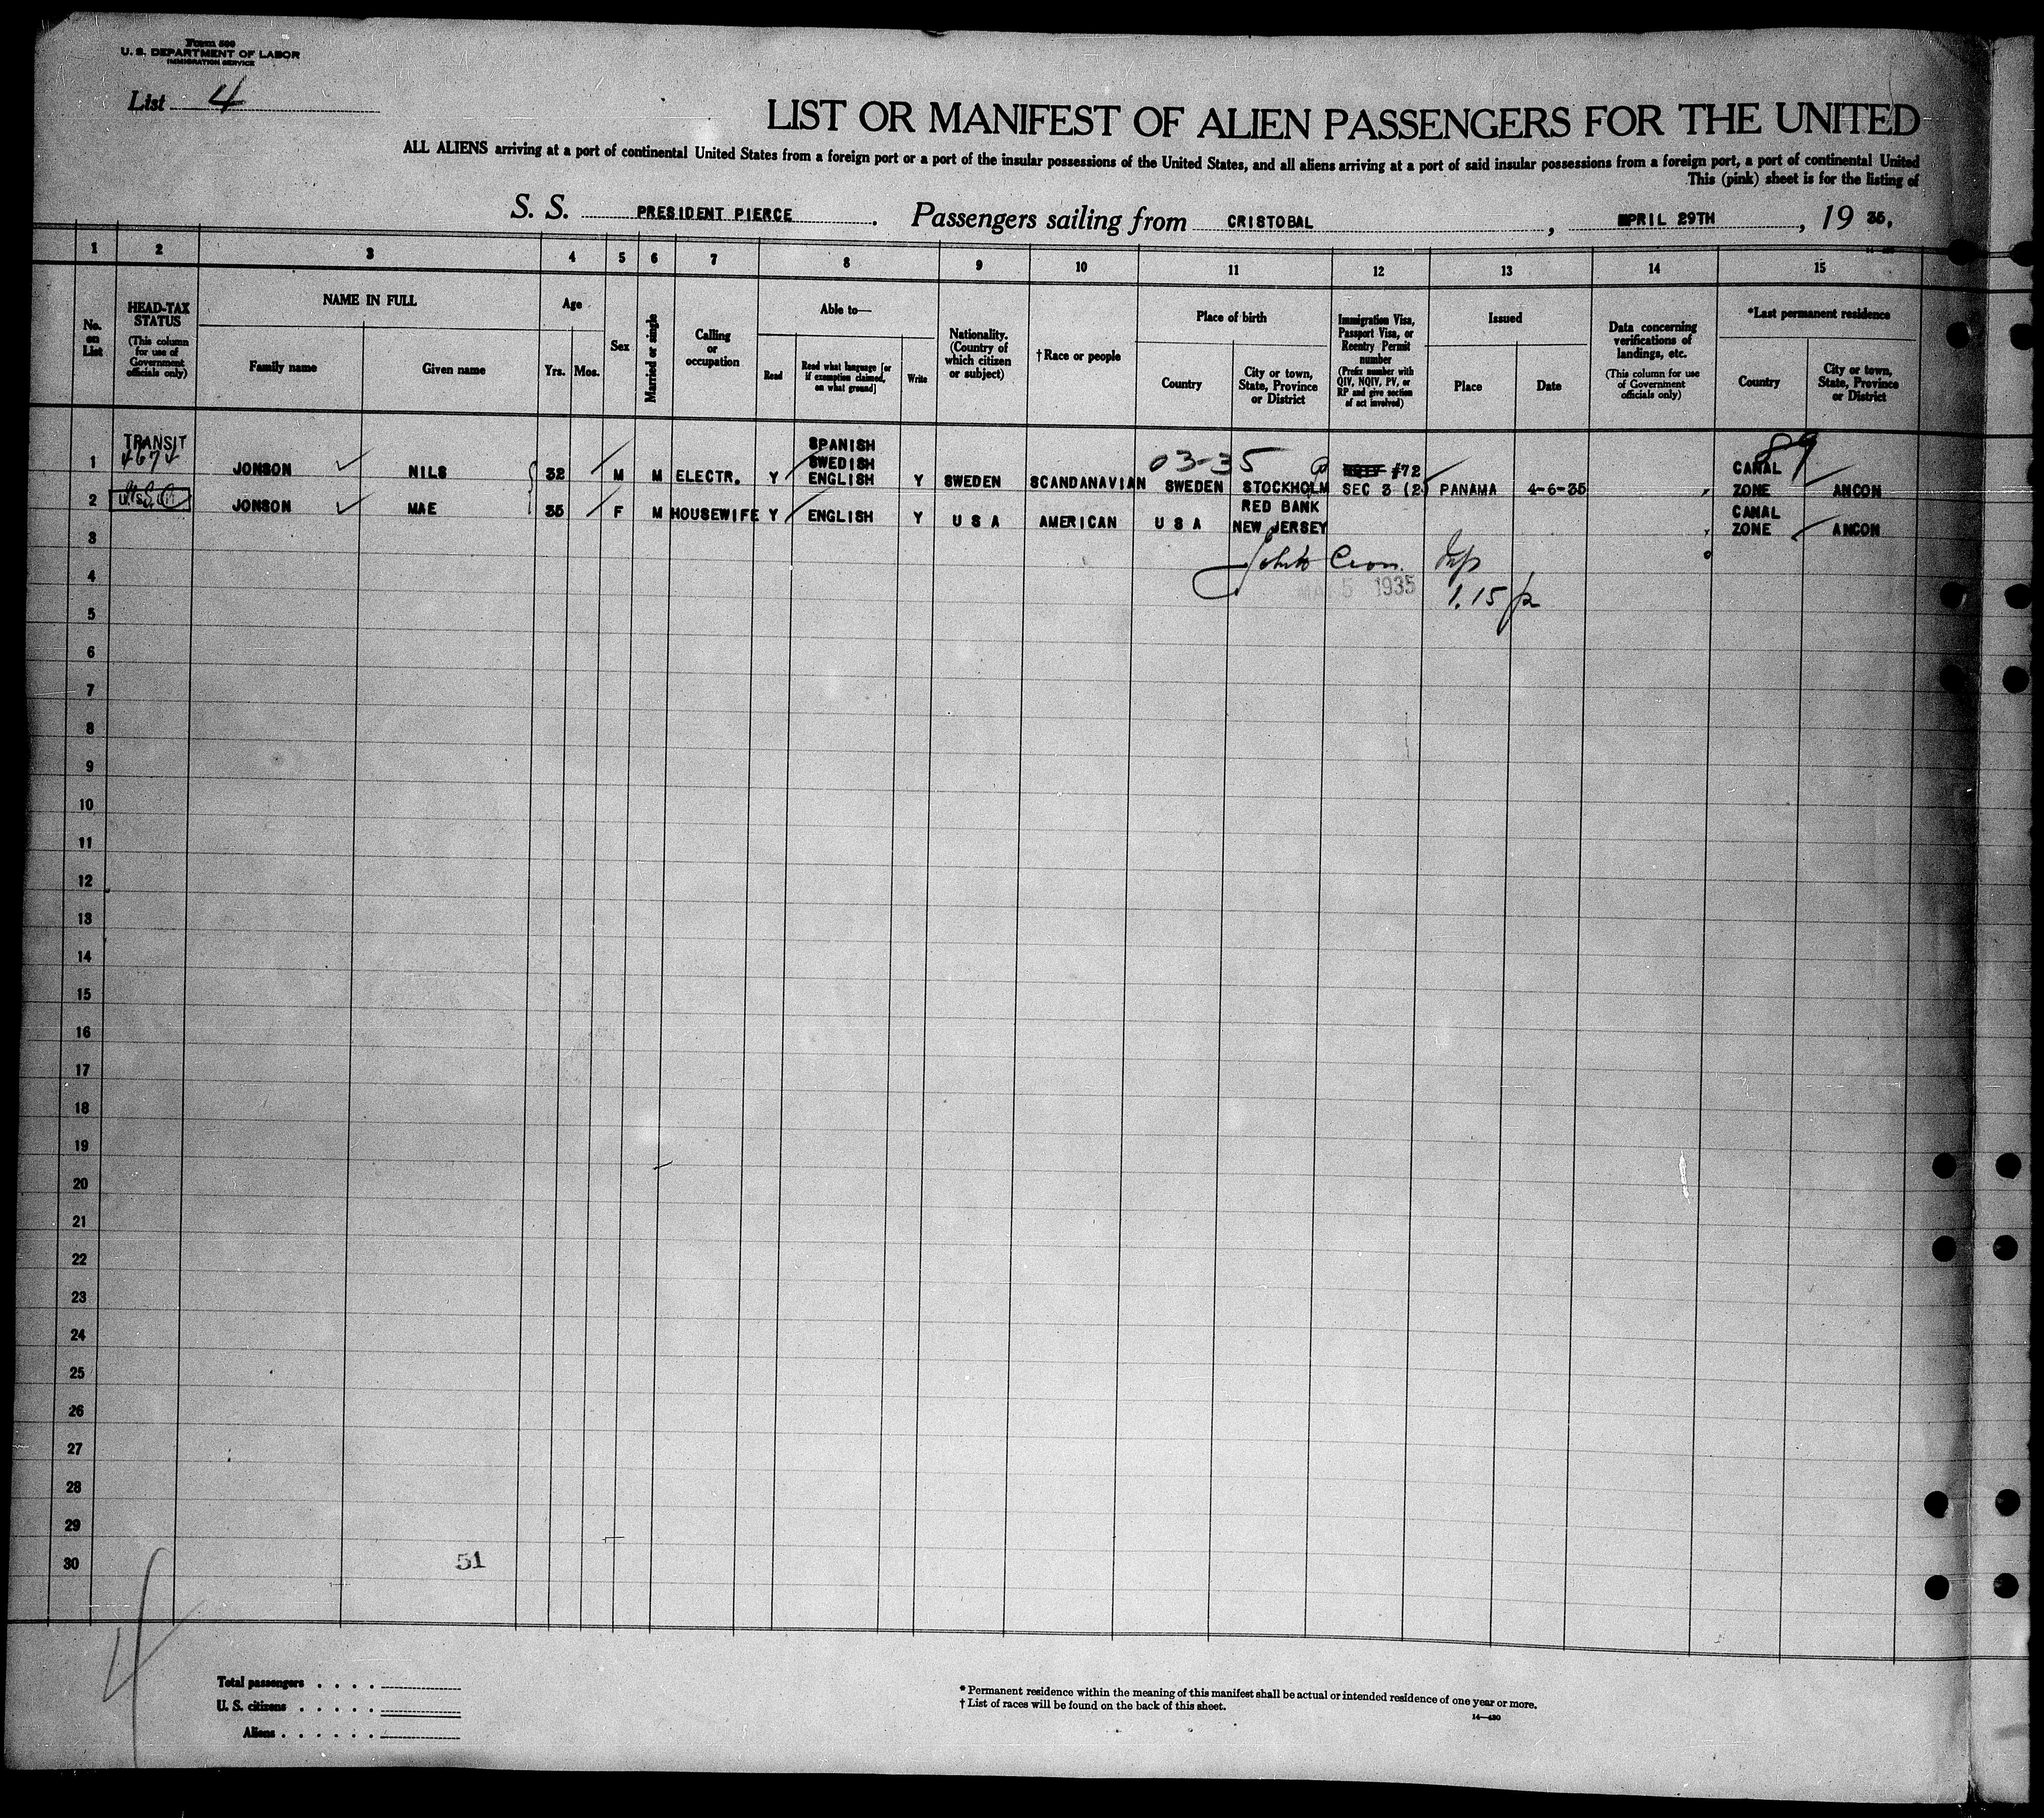 Form 500
U. S. DEPARTMENT OF LABOR
IMMIGRATION SERVICE
List 4
LIST OR MANIFEST OF ALIEN PASSENGERS FOR THE UNITED
ALL ALIENS arriving at a port of continental United States from a foreign port or a port of the insular possessions of the United States, and all aliens arriving at a port of said insular possessions from a foreign port, a port of continental United
This (pink) sheet is for the listing of
S. S. PRESIDENT PIERCE. Passengers sailing from CRISTOBAL, APRIL 29TH, 19 35.
1 2 3 4 5 6 7 8 9 10 11 12 13 14 15
No. on List
HEAD-TAX STATUS
(This column for use of Government officials only)
NAME IN FULL
Family name Given name
Age
Yrs. Mos.
Sex
Married or single
Calling or occupation
Able to—
Read
Read what language [or if exemption claimed, on what ground]
Write
Nationality. (Country of which citizen or subject)
†Race or people
Place of birth
Country
City or town, State, Province or District
Immigration Visa, Passport Visa, or Reentry Permit number
(Prefix number with QIV, NQIV, PV, or RP and give section of act involved)
Issued
Place Date
Data concerning verifications of landings, etc.
(This column for use of Government officials only)
*Last permanent residence
Country
City or town, State, Province or District
TRANSIT
SPANISH
SWEDISH
03-35
89
1 JONSON NILS 32 M M ELECTR. Y ENGLISH Y SWEDEN SCANDANAVIAN SWEDEN STOCKHOLM #72 SEC 3 (2) PANAMA 4-6-35 CANAL ZONE ANCON
2 JONSON MAE 35 F M HOUSEWIFE Y ENGLISH Y U S A AMERICAN U S A RED BANK NEW JERSEY CANAL ZONE ANCON
3
4
5 1935 1.15
6
7
8
9
10
11
12
13
14
15
16
17
18
19
20
21
22
23
24
25
26
27
28
29
30
51
4
Total passengers . . . .
U. S. citizens . . . . .
Aliens . . . . . .
* Permanent residence within the meaning of this manifest shall be actual or intended residence of one year or more.
† List of races will be found on the back of this sheet.
14—430